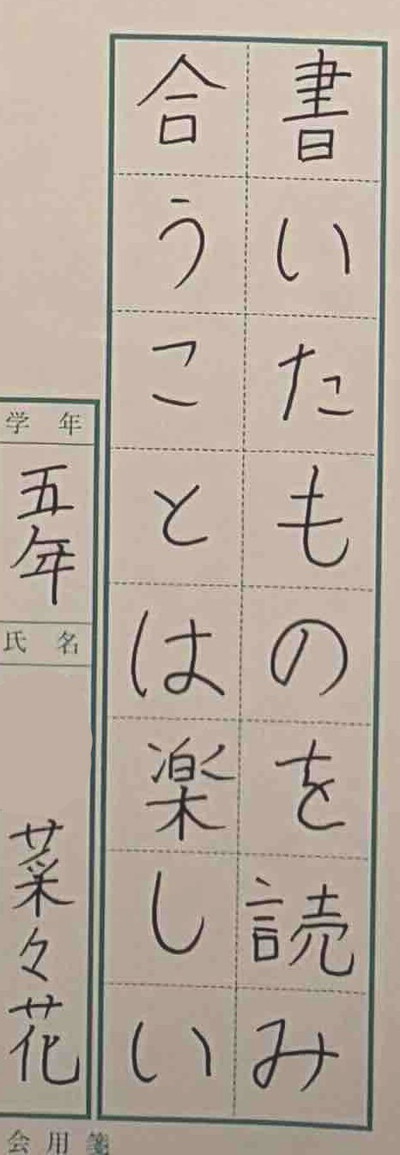 書いたものを読み
合うことは楽しい
学年
五年
氏名
菜々花
会用箋